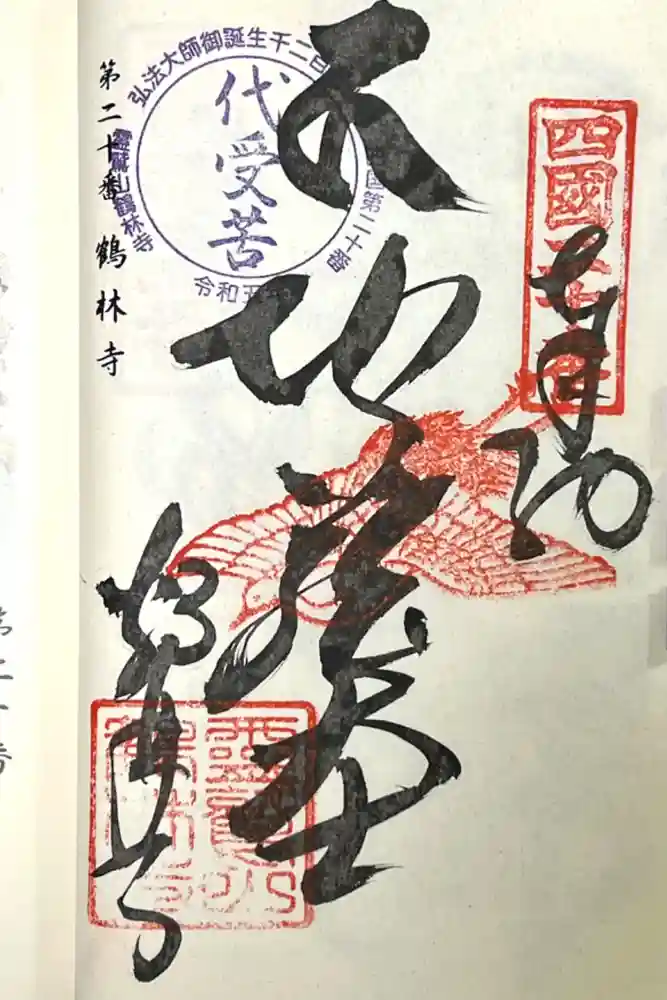 四國二十番
奉納
地蔵大士
鶴林寺
弘法大師御誕生千二百
国第二十番
令和五
霊鷲山鶴林寺
代受苦
第二十番 鶴林寺
第二十番